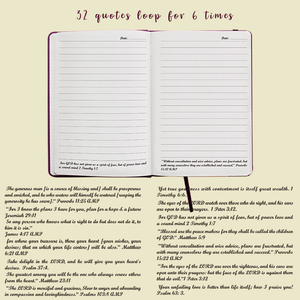 32 quotes loop for 6 times
Date:
Date:
For GOD has not given us a spirit of fear, but of power love
and a sound mind 2 Timothy 1:7
"Without consultation and wise advice, plans are frustrated, but
with many counselors they are established and succeed." Proverbs
15:22 AMP
The generous man [is a source of blessing and] shall be prosperous
and enriched, and he who waters will himself be watered [reaping the
generosity he has sown]." Proverbs 11:25 AMP
"For I know the plans I have for you, plan for a hope & a future
Jeremiah 29:11
So any person who knows what is right to do but does not do it, to
him it is sin."
James 4:17 AMP
for where your treasure is, there your heart [your wishes, your
desires; that on which your life centers] will be also." Matthew
6:21 AMP
Take delight in the LORD, and he will give you your heart's
desires." Psalms 37:4.
The greatest among you will be the one who always serves others
from the heart." Matthew 23:11
"The LORD is merciful and gracious, Slow to anger and abounding
in compassion and lovingkindness." Psalms 103:8 AMP
Yet true greatness with contentment is itself great wealth. 1
Timothy 6:6.
The eyes of the LORD watch over those who do right, and his ears
are open to their prayers. 1 Peter 3:12.
For GOD has not given us a spirit of fear, but of power love and
a sound mind 2 Timothy 1:7
"Blessed are the peace makers for they shall be called the children
of GOD." Matthew 5:9
"Without consultation and wise advice, plans are frustrated, but
with many counselors they are established and succeed." Proverbs
15:22 AMP
"For the eyes of the LORD are upon the righteous, and his ears are
open unto their prayers: but the face of the LORD is against them
that do evil." 1 Peter 3:12
Your unfailing love is better than life itself; how I praise you!
Psalms 63:3.